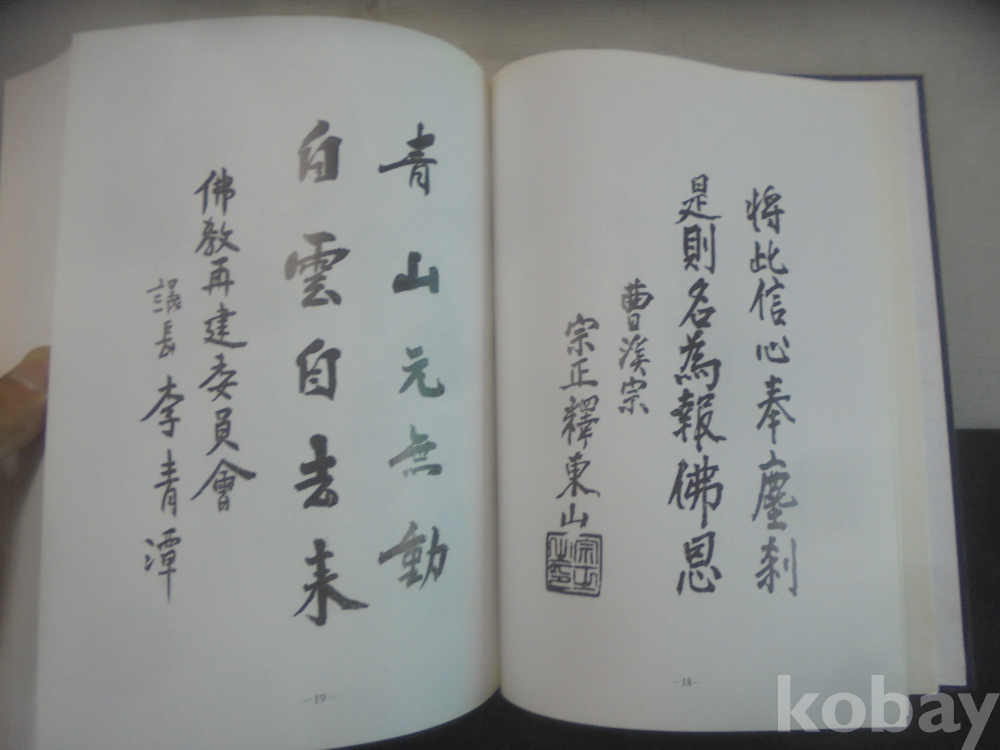 將此信心奉塵刹
是則名為報佛恩
曹溪宗
宗正釋東山
宗正之印
-18-
青山元無動
白雲自去来
佛教再建委員會
議長 李青潭
-19-
kobay